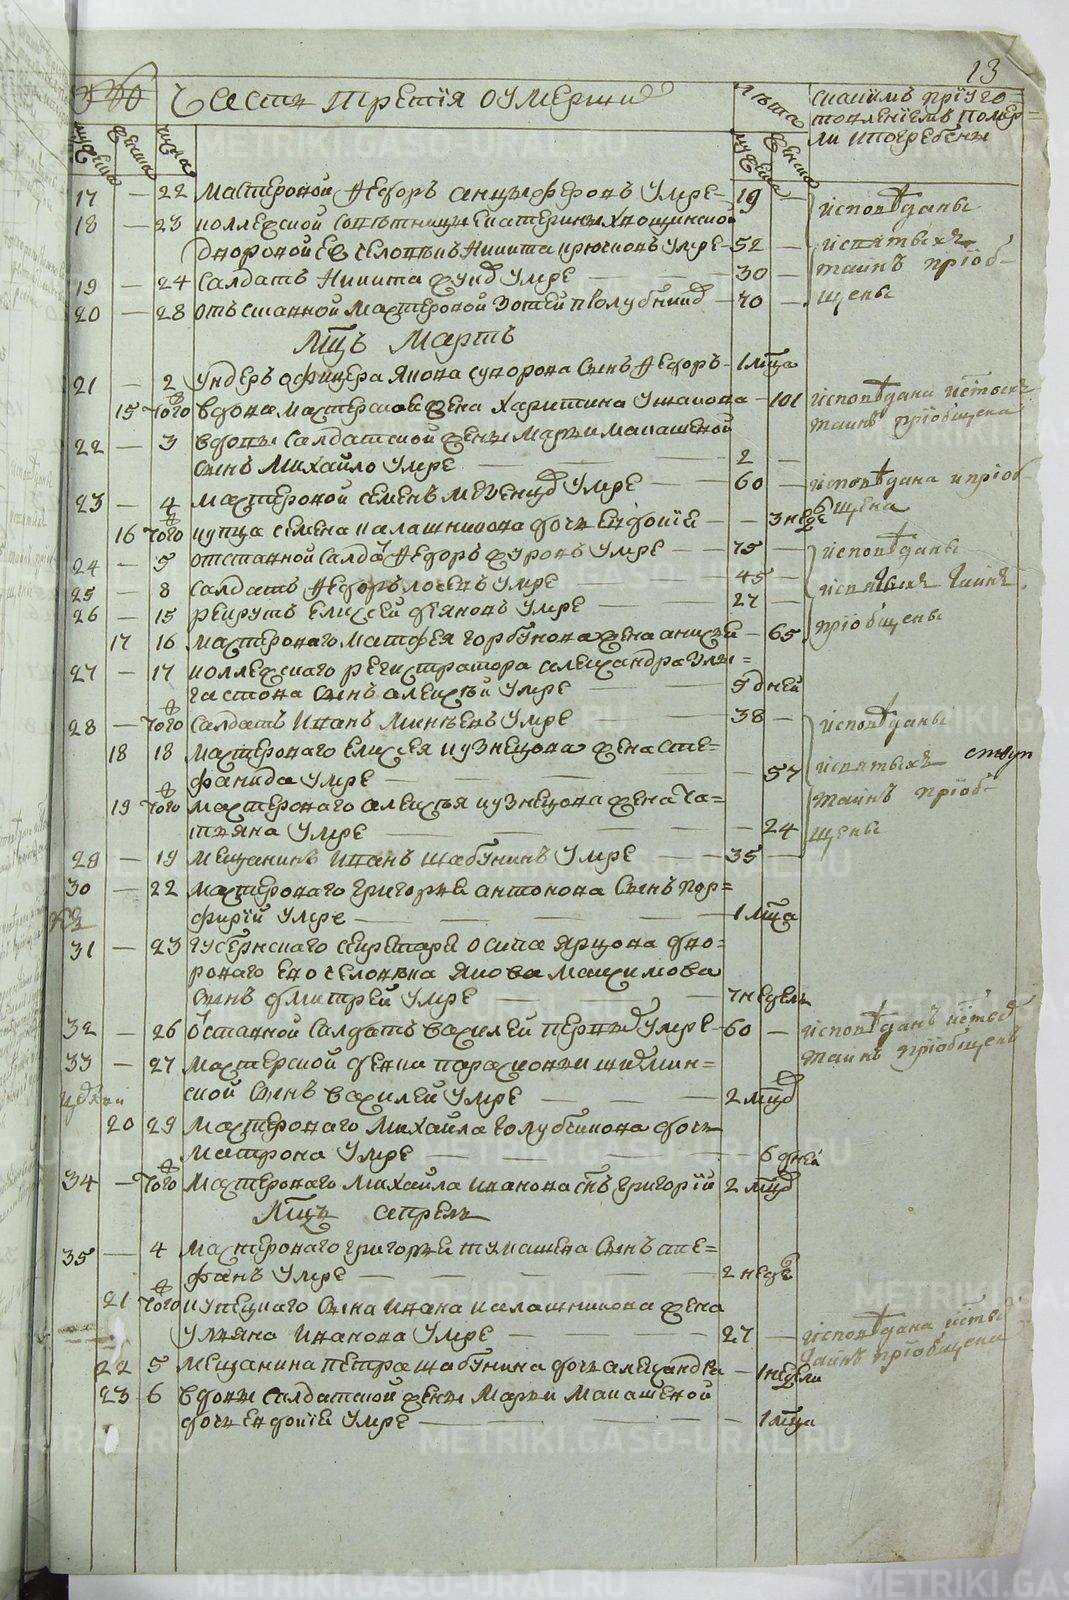 13
Часть третїя оумерши
лѣта
скакимъ прїуго-
товленїемъ помер-
ли ипогребены
мужеска
женска
числа
мужеска
женска
17 — 22 мастеровой Ѳедоръ анцыферовъ умре — 19 —
исповѣданы
18 — 23 коллежской совѣтницы Екатерины хвощинской
дворовой Ея человѣкъ Никита крючковъ умре — 52 —
исвятыхъ
19 — 24 салдатъ Никита умре — 30 —
таинъ прїоб-
20 — 28 отъставной мастеровой Зотей голубчик — 70 —
щены
Мцъ Мартъ
21 — 2 ундеръ офицера Якова суворова сынъ Ѳедоръ — 1 мца
15 того вдова мастерская жена Харитина ушакова — 101
исповѣдана
таинъ прїобщена
22 — 3 вдовы салдатской жены Марьи макашевой
сынъ Михайло умре — 2 —
23 — 4 мастеровой семенъ умре — 60 —
исповѣдана и прїоб
щена
16 того купца семена калашникова дочь Евдокїя — 3 неде
24 — 5 отставной салда Ѳедоръ умре — 75 —
исповѣданы
25 — 8 салдатъ Ѳедоръ лосевъ умре — 45 —
исвятыхъ таинъ
26 — 15 рекрутъ Елисей фʼяновъ умре — 27 —
прїобщены
17 16 мастероваго Матфея горбунова жена — 65
27 — 17 коллежскаго регистратора александра
сынъ алексѣй умре — 5 дней
28 — того салдатъ Иванъ умре — 38 —
исповѣданы
18 18 мастероваго Елисея кузнецова жена сте-
фанида умре — 57
исвятыхъ
19 того мастероваго алексѣя кузнецова жена та-
таинъ прїоб-
тьяна умре — 24
щены
28 — 19 мещанинъ Иванъ шабунинъ умре — 35 —
30 — 22 мастероваго григорья антонова сынъ пор-
фирїй умре — 1 мца
31 — 23 губернскаго секретаря осипа ярцова дво-
роваго Ево человѣка Якова Максимова
сынъ дмитрей умре — 7 недель
32 — 26 отставной салдатъ василей умре — 60 —
исповѣданъ
таинъ прїобщенъ
33 — 27 мастерской женки парасковьи
ской сынъ василей умре — 2 мцд
20 29 мастероваго Михайла голубчикова дочь
матрона умре — 6 дней
34 — того мастероваго Михайла иванова снъ григорїй 2 мцд
Мцъ апрель
35 — 4 мастероваго григорья тумашева сынъ сте-
фанъ умре — 2 неде
21 того купецкаго сына ивана калашникова жена
ульяна иванова умре — 27 —
исповѣдана
таинъ прїобщена
22 5 мещанина петра шабунина дочь александра — 1 недели
23 6 вдовы салдатской жены Марьи Макашевой
дочь Евдокїя умре — 1 мца